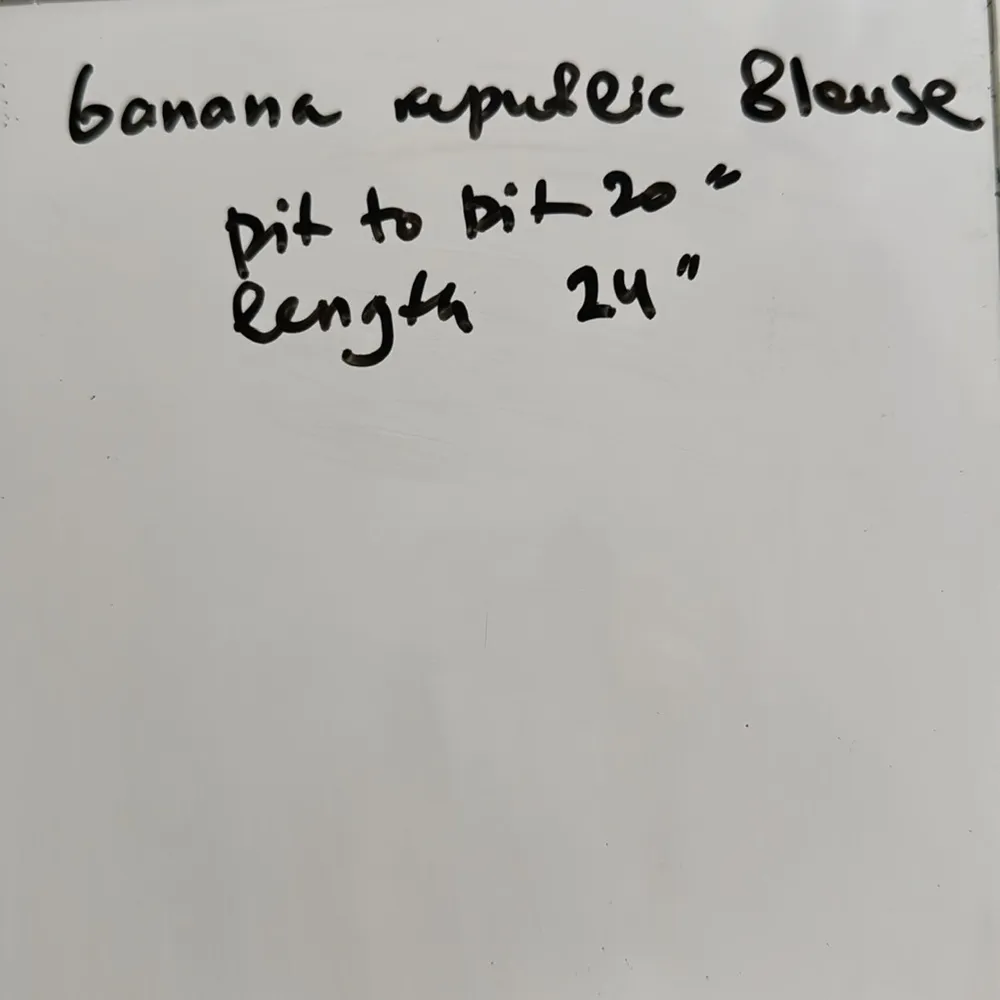 banana republic Blouse
pit to pit 20"
length 24"